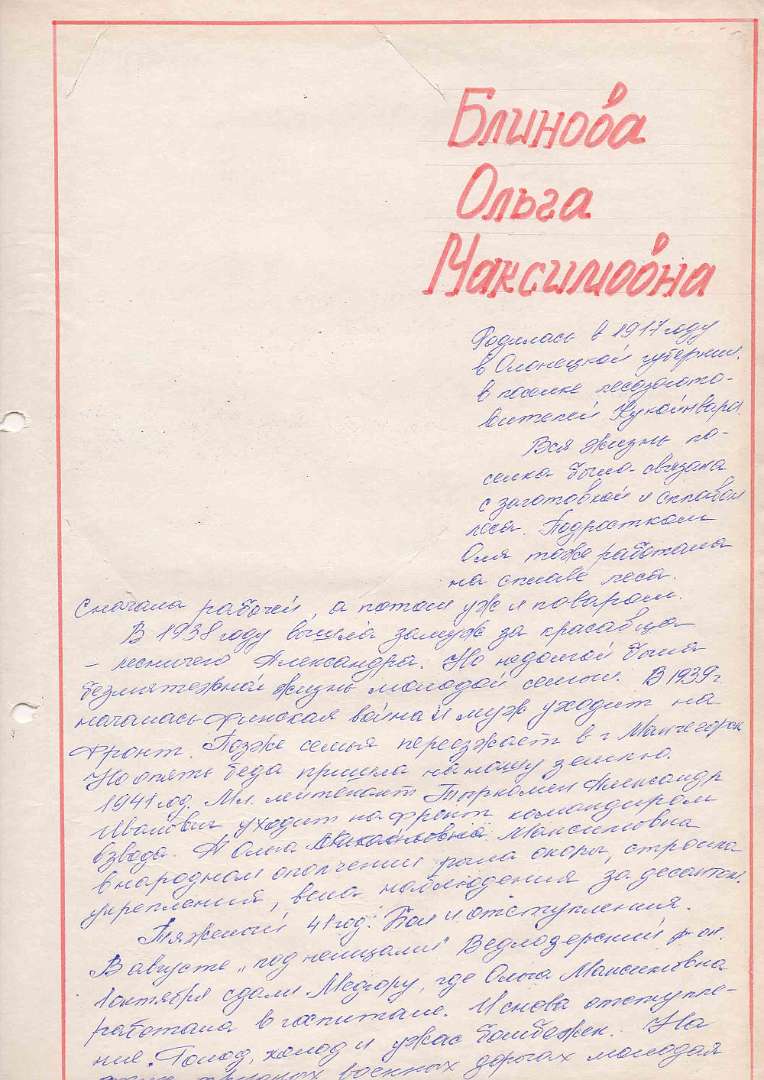 Блинова
Ольга
Максимовна
Родилась в 1917 году
в Олонецкой губернии.
в поселке лесозагото-
вителей Кукойнвара.
Вся жизнь по-
селка была связана
с заготовкой и сплавом
леса. Подростком
Оля тоже работала
на сплаве леса.
сначала рабочей, а потом уж и поваром.
В 1938 году вышла замуж за красавца
- лесничего Александра. Но недолгой была
безмятежной жизнь молодой семьи. В 1939 г
началась финская война и муж уходит на
фронт. Позже семья переезжает в г. Мончегорск
Но опять беда пришла на нашу землю.
1941 год. Мл. лейтенант Александр
Иванович уходит на фронт командиром
взвода. А Ольга Максимовна
в народном ополчении рыла окопы, строила
укрепления, вела наблюдения за десантом.
Тяжелый 41 год. Бои и отступления.
В августе „под немцами" Ведлозерский р-он.
1 октября сдали Медгору, где Ольга Максимовна
работала в госпитале. И снова отступле-
ние. Голод, холод и ужас бомбежек. На
военных дорогах молодая